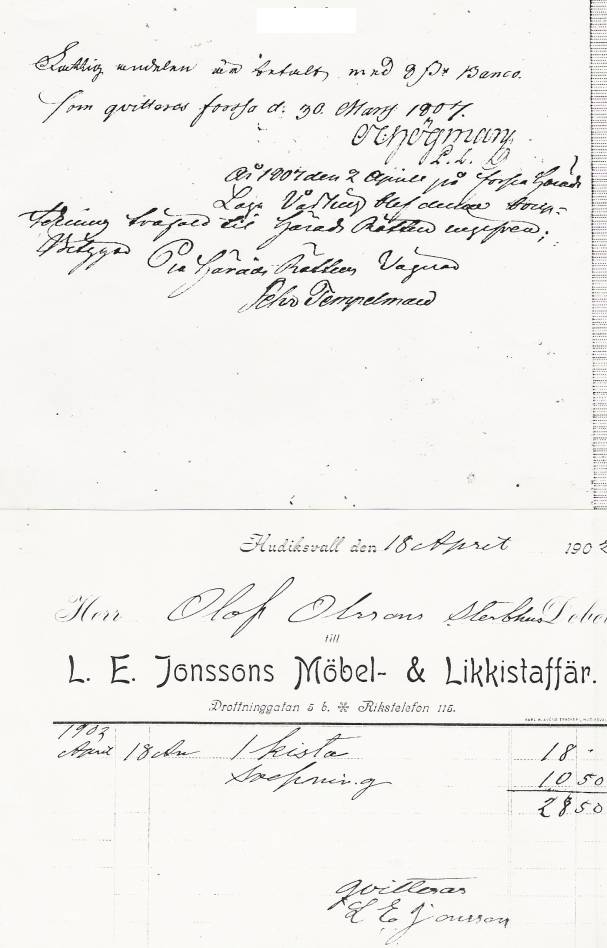 Fattig andelen är betalt med 8 sk Banco.
Som qvitteras forssa d. 30. Mars 1807.
Högman
P. L. D
År 1807 den 2 Aprill på forssa Härads
Laga Vårting blef denna boup-
tekning tvåfald til Härads Rätten ingifven;
Betygar
På Härads Rättens Vägnar
Pehr Tempelman
Hudiksvall den 18 April 190
Herr Olof Olssons Sterbhus Debe
till
L. E. Jonssons Möbel- & Likkistaffär.
Drottninggatan 5 b. ※ Rikstelefon 115.
1903
April 18 An 1 kista 18 -
svepning 10 50
28 50
qvitteras
L E Jonsson